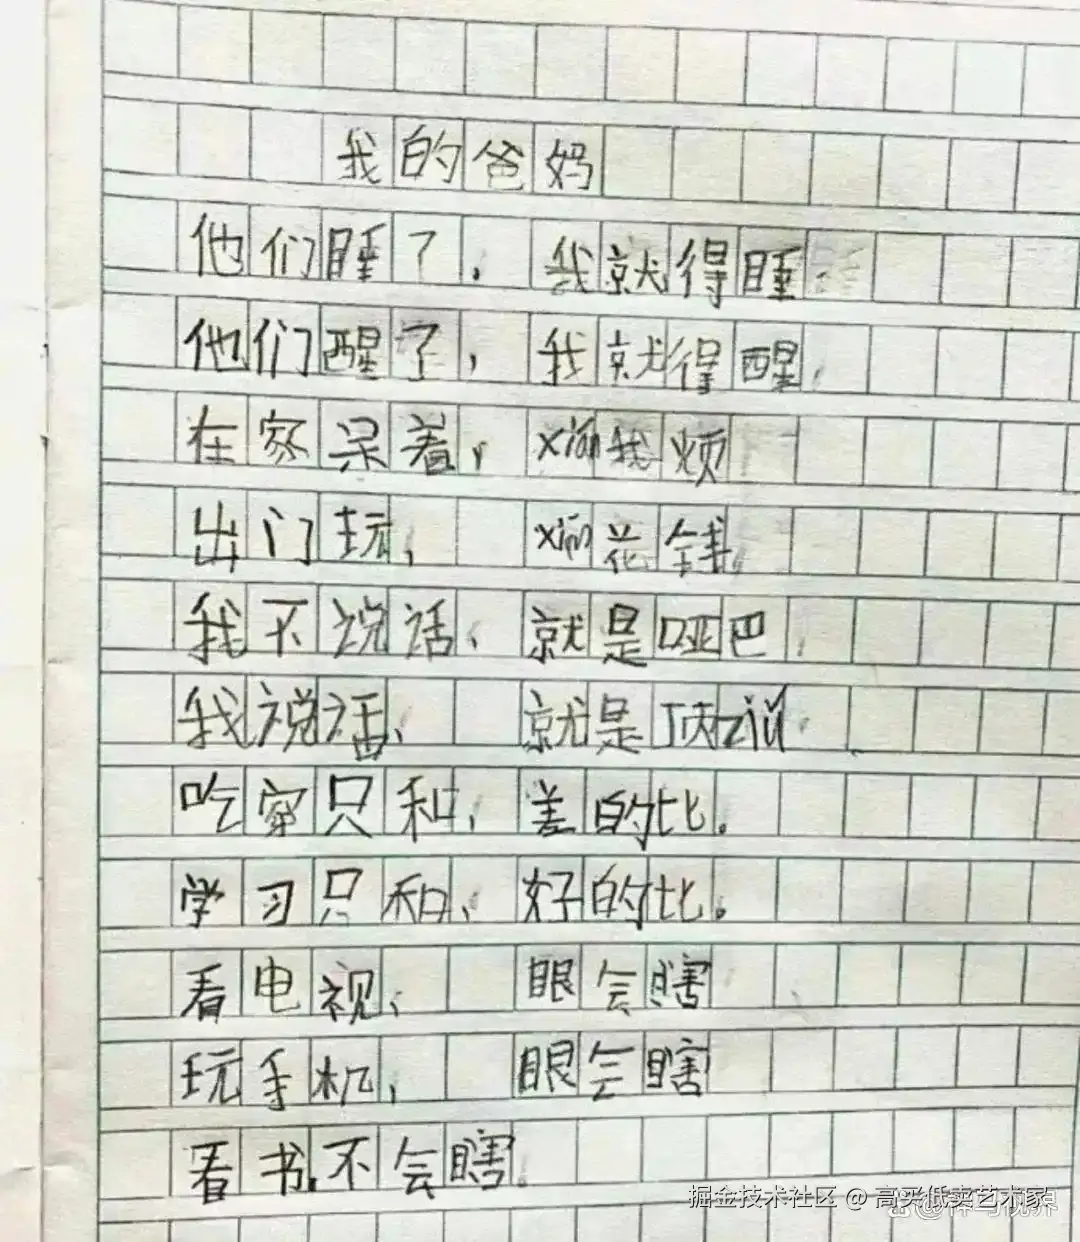 我的爸妈
他们睡了。我就得睡
他们醒了，我就得醒，
在家呆着，xián我烦
出门玩，xián花钱，
我不说话，就是哑巴
我说话，就是顶zuǐ
吃穿只和，差的比。
学习只和，好的比。
看电视，眼会瞎
玩手机，眼会瞎
看书，不会瞎。
掘金技术社区 @ 高买低卖艺术家